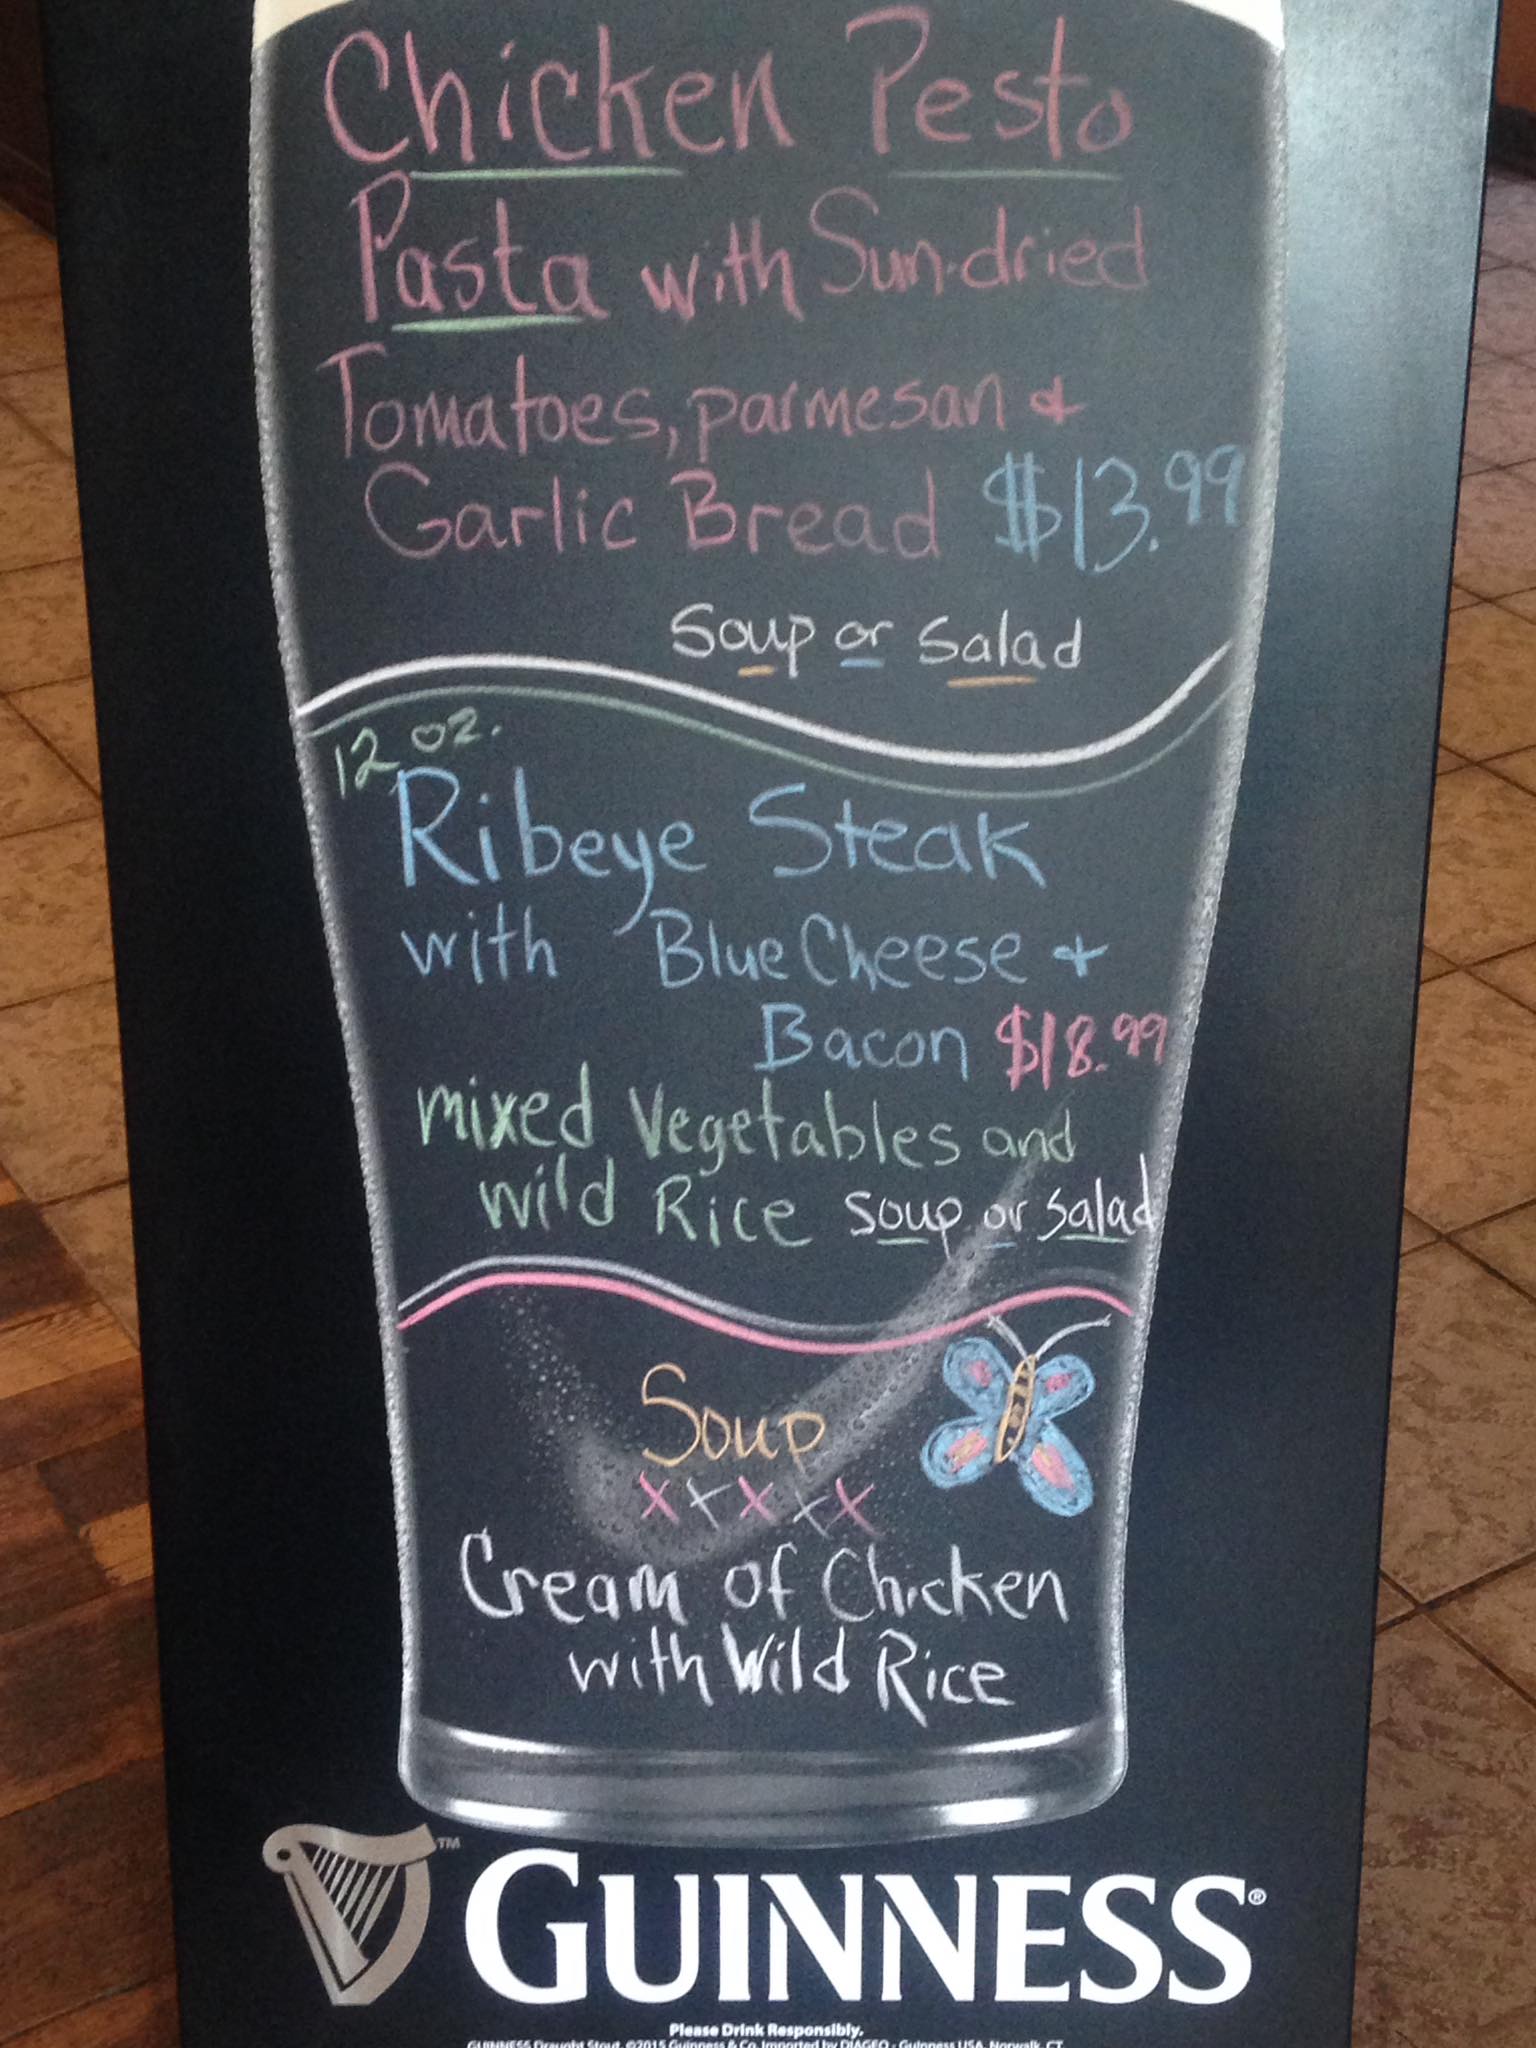 Chicken Pesto
Pasta with Sun-dried
Tomatoes, parmesan &
Garlic Bread $13.99
Soup or Salad
12 oz.
Ribeye Steak
with Blue Cheese +
Bacon $18.99
mixed Vegetables and
wild Rice soup or salad
Soup
xxxxx
Cream of Chicken
with Wild Rice
™
GUINNESS®
Please Drink Responsibly.
GUINNESS Draught Stout. ©2015 Guinness & Co. Imported by DIAGEO - Guinness USA. Norwalk, CT